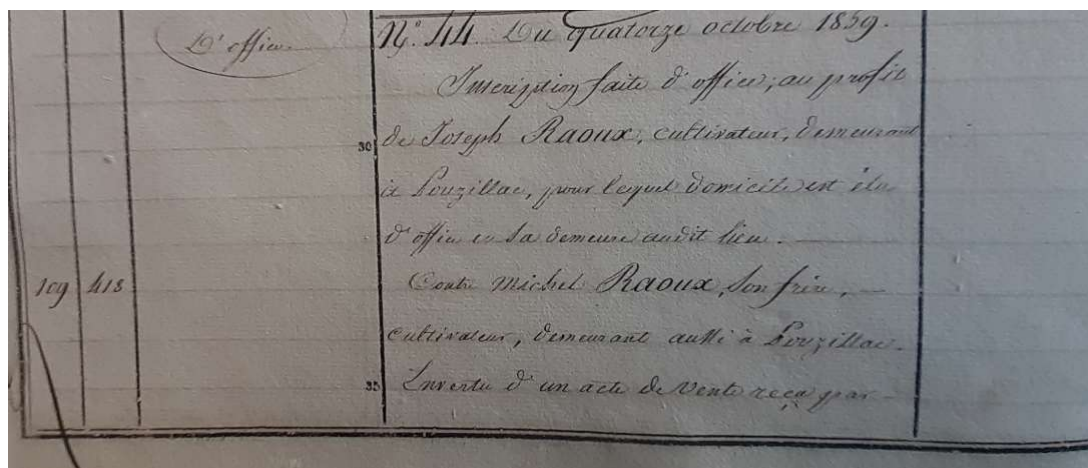 D'office
N.° 44. Du quatorze octobre 1859.
Inscription faite d'office, au profit
30 de Joseph Raoux, cultivateur, demeurant
à Pouzillac, pour lequel domicile est élu
d'office en sa demeure audit lieu.
109 418 Contre Michel Raoux, son frère,
cultivateur, demeurant aussi à Pouzillac.
35 En vertu d'un acte de vente reçu par